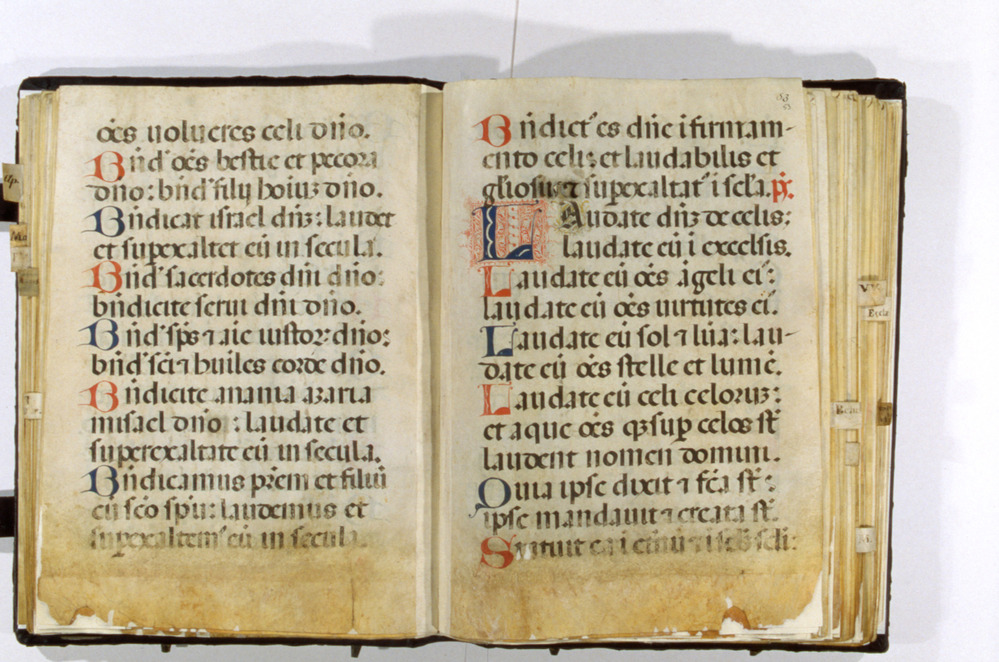 oēs uolucres celi dn̄o.
Bn̄d' oēs bestie et pecora
dn̄o: bn̄d' filij hoīuȝ dn̄o.
Bn̄dicat israel dn̄ȝ: laudet
et superexaltet eū in secula.
Bn̄d' sacerdotes dn̄i dn̄o:
bn̄dicite serui dn̄i dn̄o.
Bn̄d' sp̄s ⁊ aīe iustoꝝ dn̄o:
bn̄d' sc̄i ⁊ huiles corde dn̄o.
Bn̄dicite anania azaria
misael dn̄o : laudate et
superexaltate eū in secula.
Bn̄dicamus pr̄em et filiū
cū sc̄o sp̄u: laudemus et
superexaltem' eū in secula.
Bn̄dict' es dn̄e i firmam-
ento celi: et laudabilis et
gl̄iosus ⁊ superexaltat' i sc̄la. p̄s.
LAudate dn̄ȝ de celis:
laudate eū i excelsis.
Laudate eū oēs āgeli ei':
laudate eū oēs uirtutes ei'.
Laudate eū sol ⁊ lūa: lau-
date eū oēs stelle et lumē.
Laudate eū celi celoruȝ:
et aque oēs q̄ sup̄ celos st̄
laudent nomen domini.
Quia ipse dixit ⁊ fc̄a st̄:
ipse mandauit ⁊ creata st̄.
Statuit ea i etnū ⁊ i